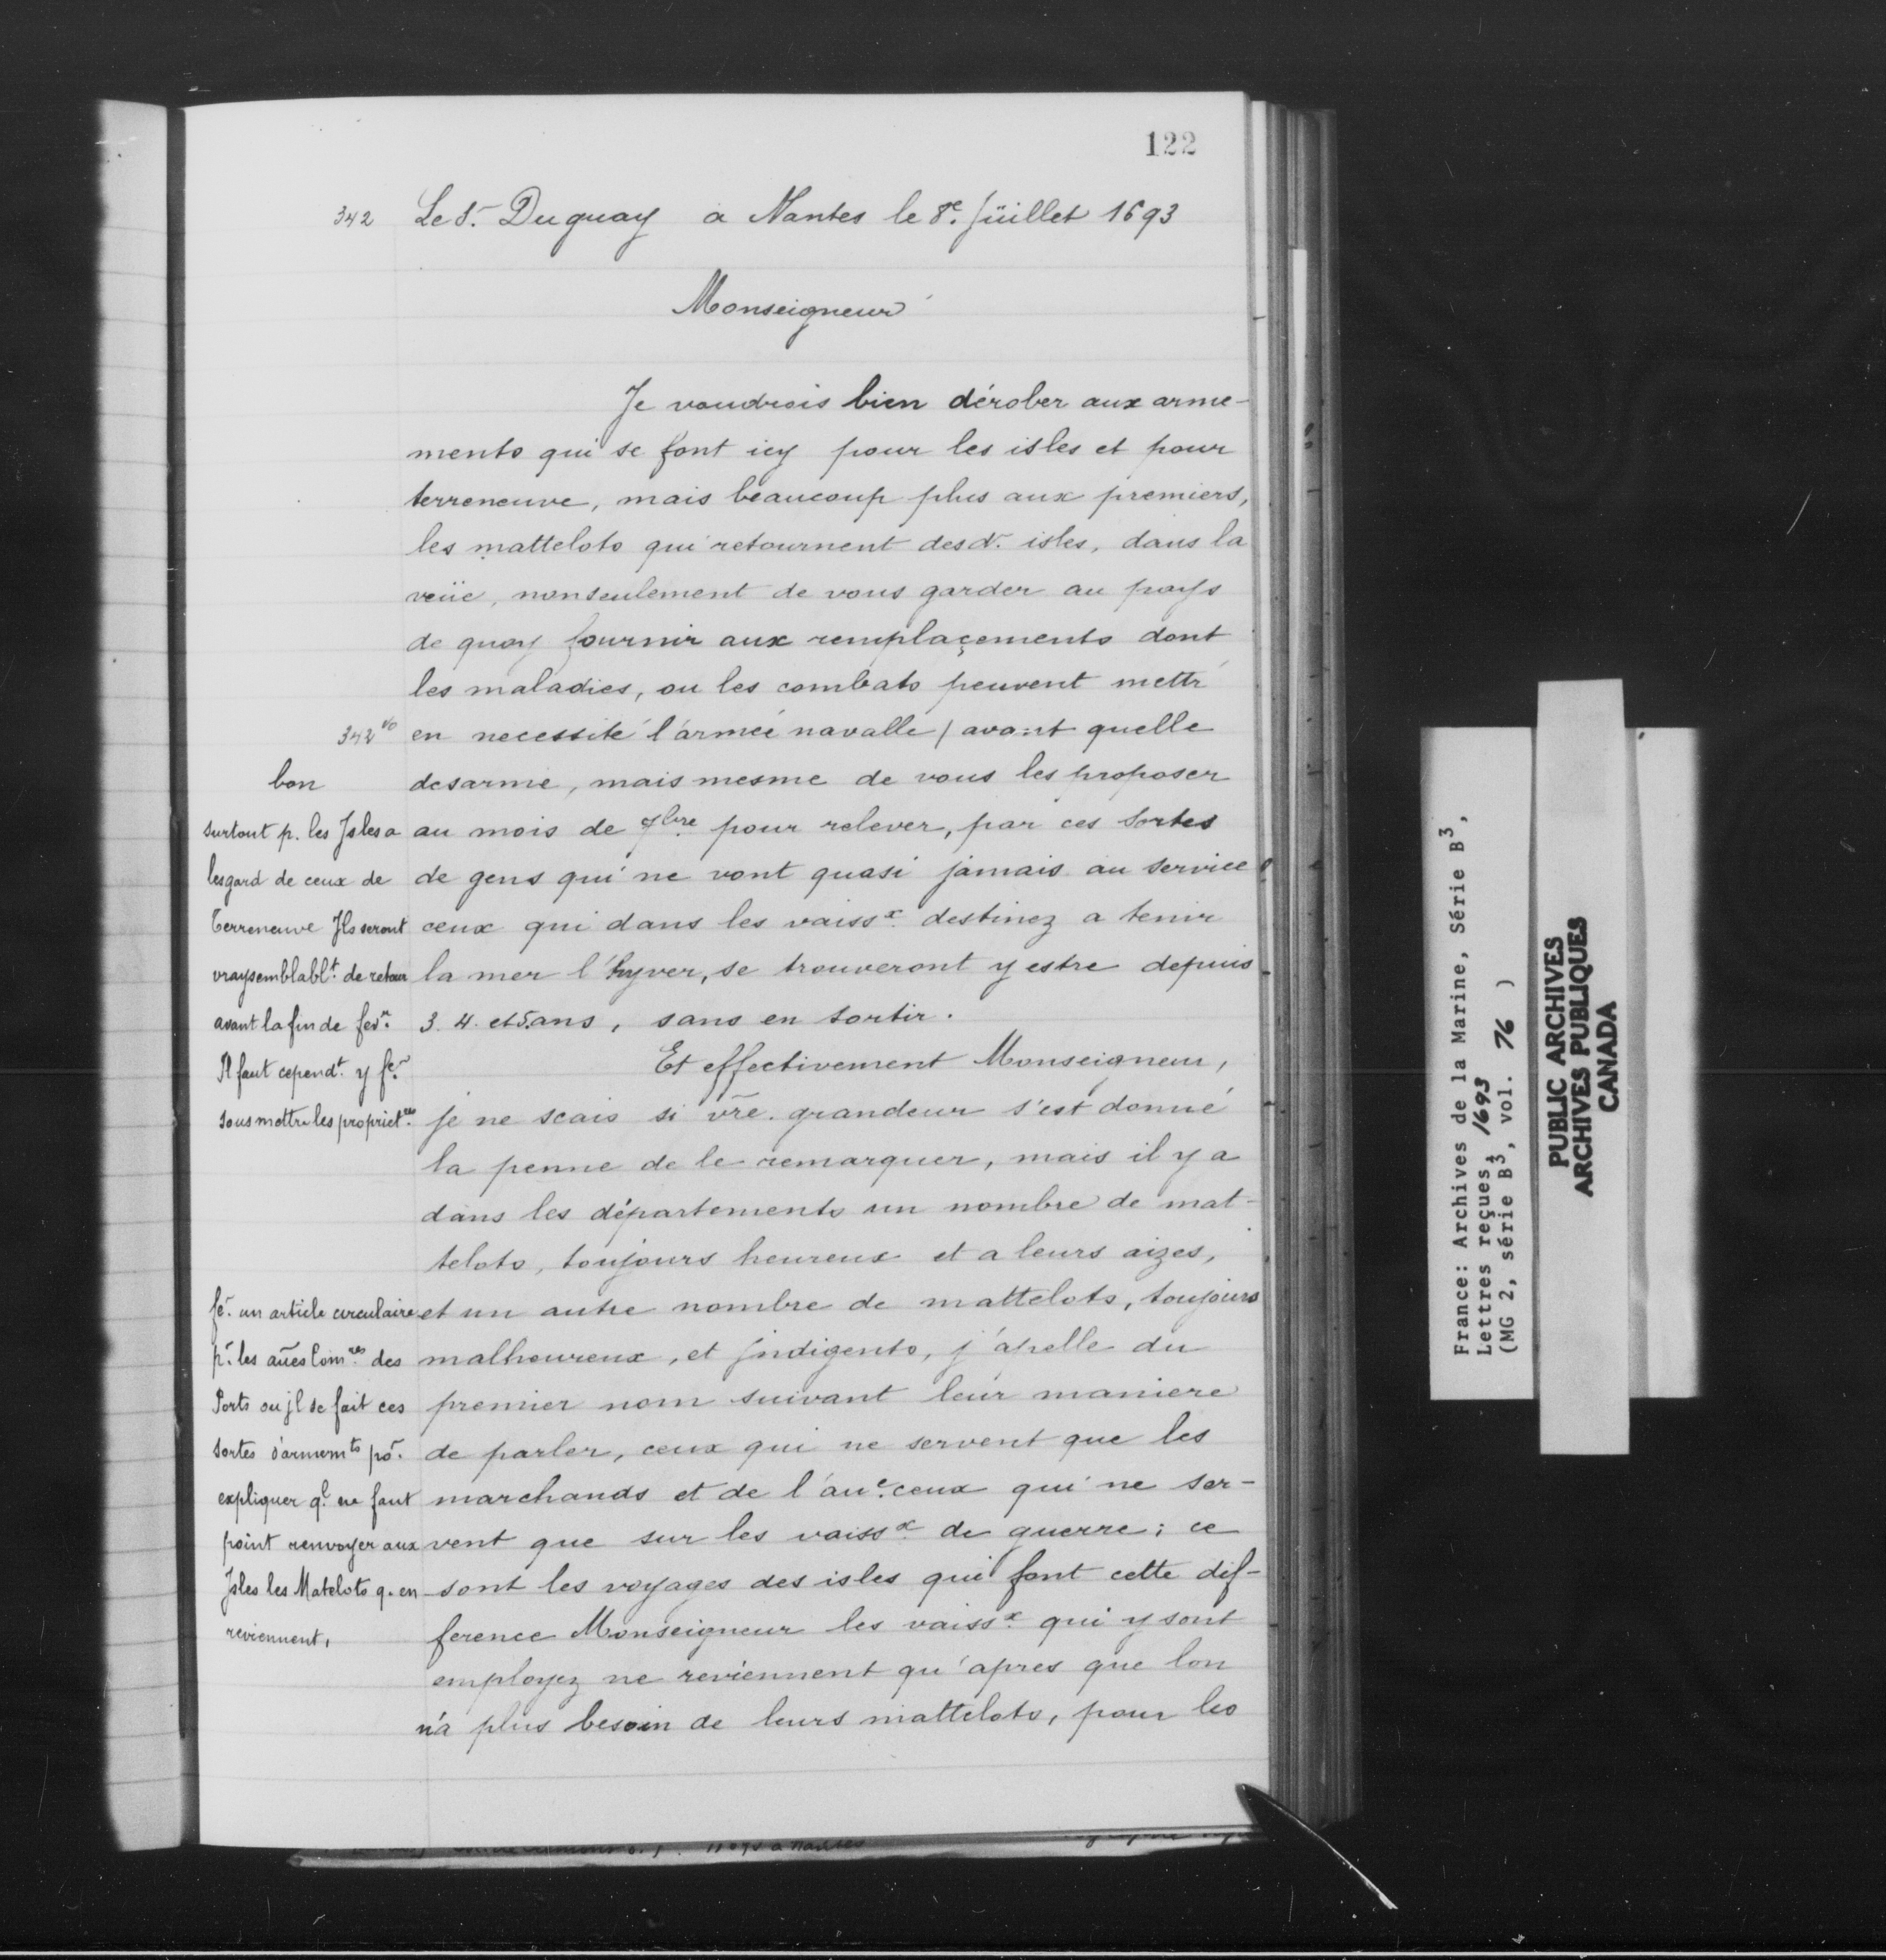 122
342 Le S.r Duguay a Nantes le 8e. Jüillet 1693
Monseigneur
Je voudrois bien dérober aux arme-
ments qui se font icy pour les isles et pour
terreneuve, mais beaucoup plus aux premiers,
les matteloto qui retournent desd.r isles, dans la
veüe, nonseulement de vous garder au pays
de quoy fournir aux remplaçements dont
les maladies, ou les combats peuvent mettr
342vo en necessité l'armeé navalle / avant quelle
desarme, mais mesme de vous les proposer
au mois de 9bre. pour relever, par ces sortes
de gens qui ne vont quasi jamais au service
ceux qui dans les vaissx. destinez a tenir
la mer l'hyver, se trouveront y estre depuis
3. 4. et 5. ans, sans en sortir.
Et effectivement Monseigneur,
je ne scais si vr̃e. grandeur s'est donné
la penne de le remarquer, mais il y a
dans les départements un nombre de mat-
telots, toujours heureux et a leurs aizes,
et un autre nombre de mattelots, toujours
malheureux, et Jndigents, j'apelle du
premier nom suivant leur maniere
de parler, ceux qui ne servent que les
marchands et de l'aue. ceux qui ne ser-
vent que sur les vaissx. de guerre; ce
sont les voyages des isles qui font cette dif-
ference Monseigneur les vaissx. qui y sont
employez ne reviennent qu'apres que lon
n'a plus besoin de leurs mattelots, pour les
bon
surtout p. les Jsles a
lesgard de ceux de
Terreneuve Jls seront
vraysemblablt. de retour
avant la fin de fevr.
Il faut cependt. y fe.r
sousmettre les propriet.res
fe.r un article circulaire
p.r les aũes Comres. des
Ports ou jl se fait ces
sortes d'armemts po.r
expliquer ql. ne faut
point renvoyer aux
Jsles les Matelots q. en
reviennent,
France: Archives de la Marine, Série B3,
Lettres reçues, 1693
(MG 2, série B3, vol. 76 )
PUBLIC ARCHIVES
ARCHIVES PUBLIQUES
CANADA